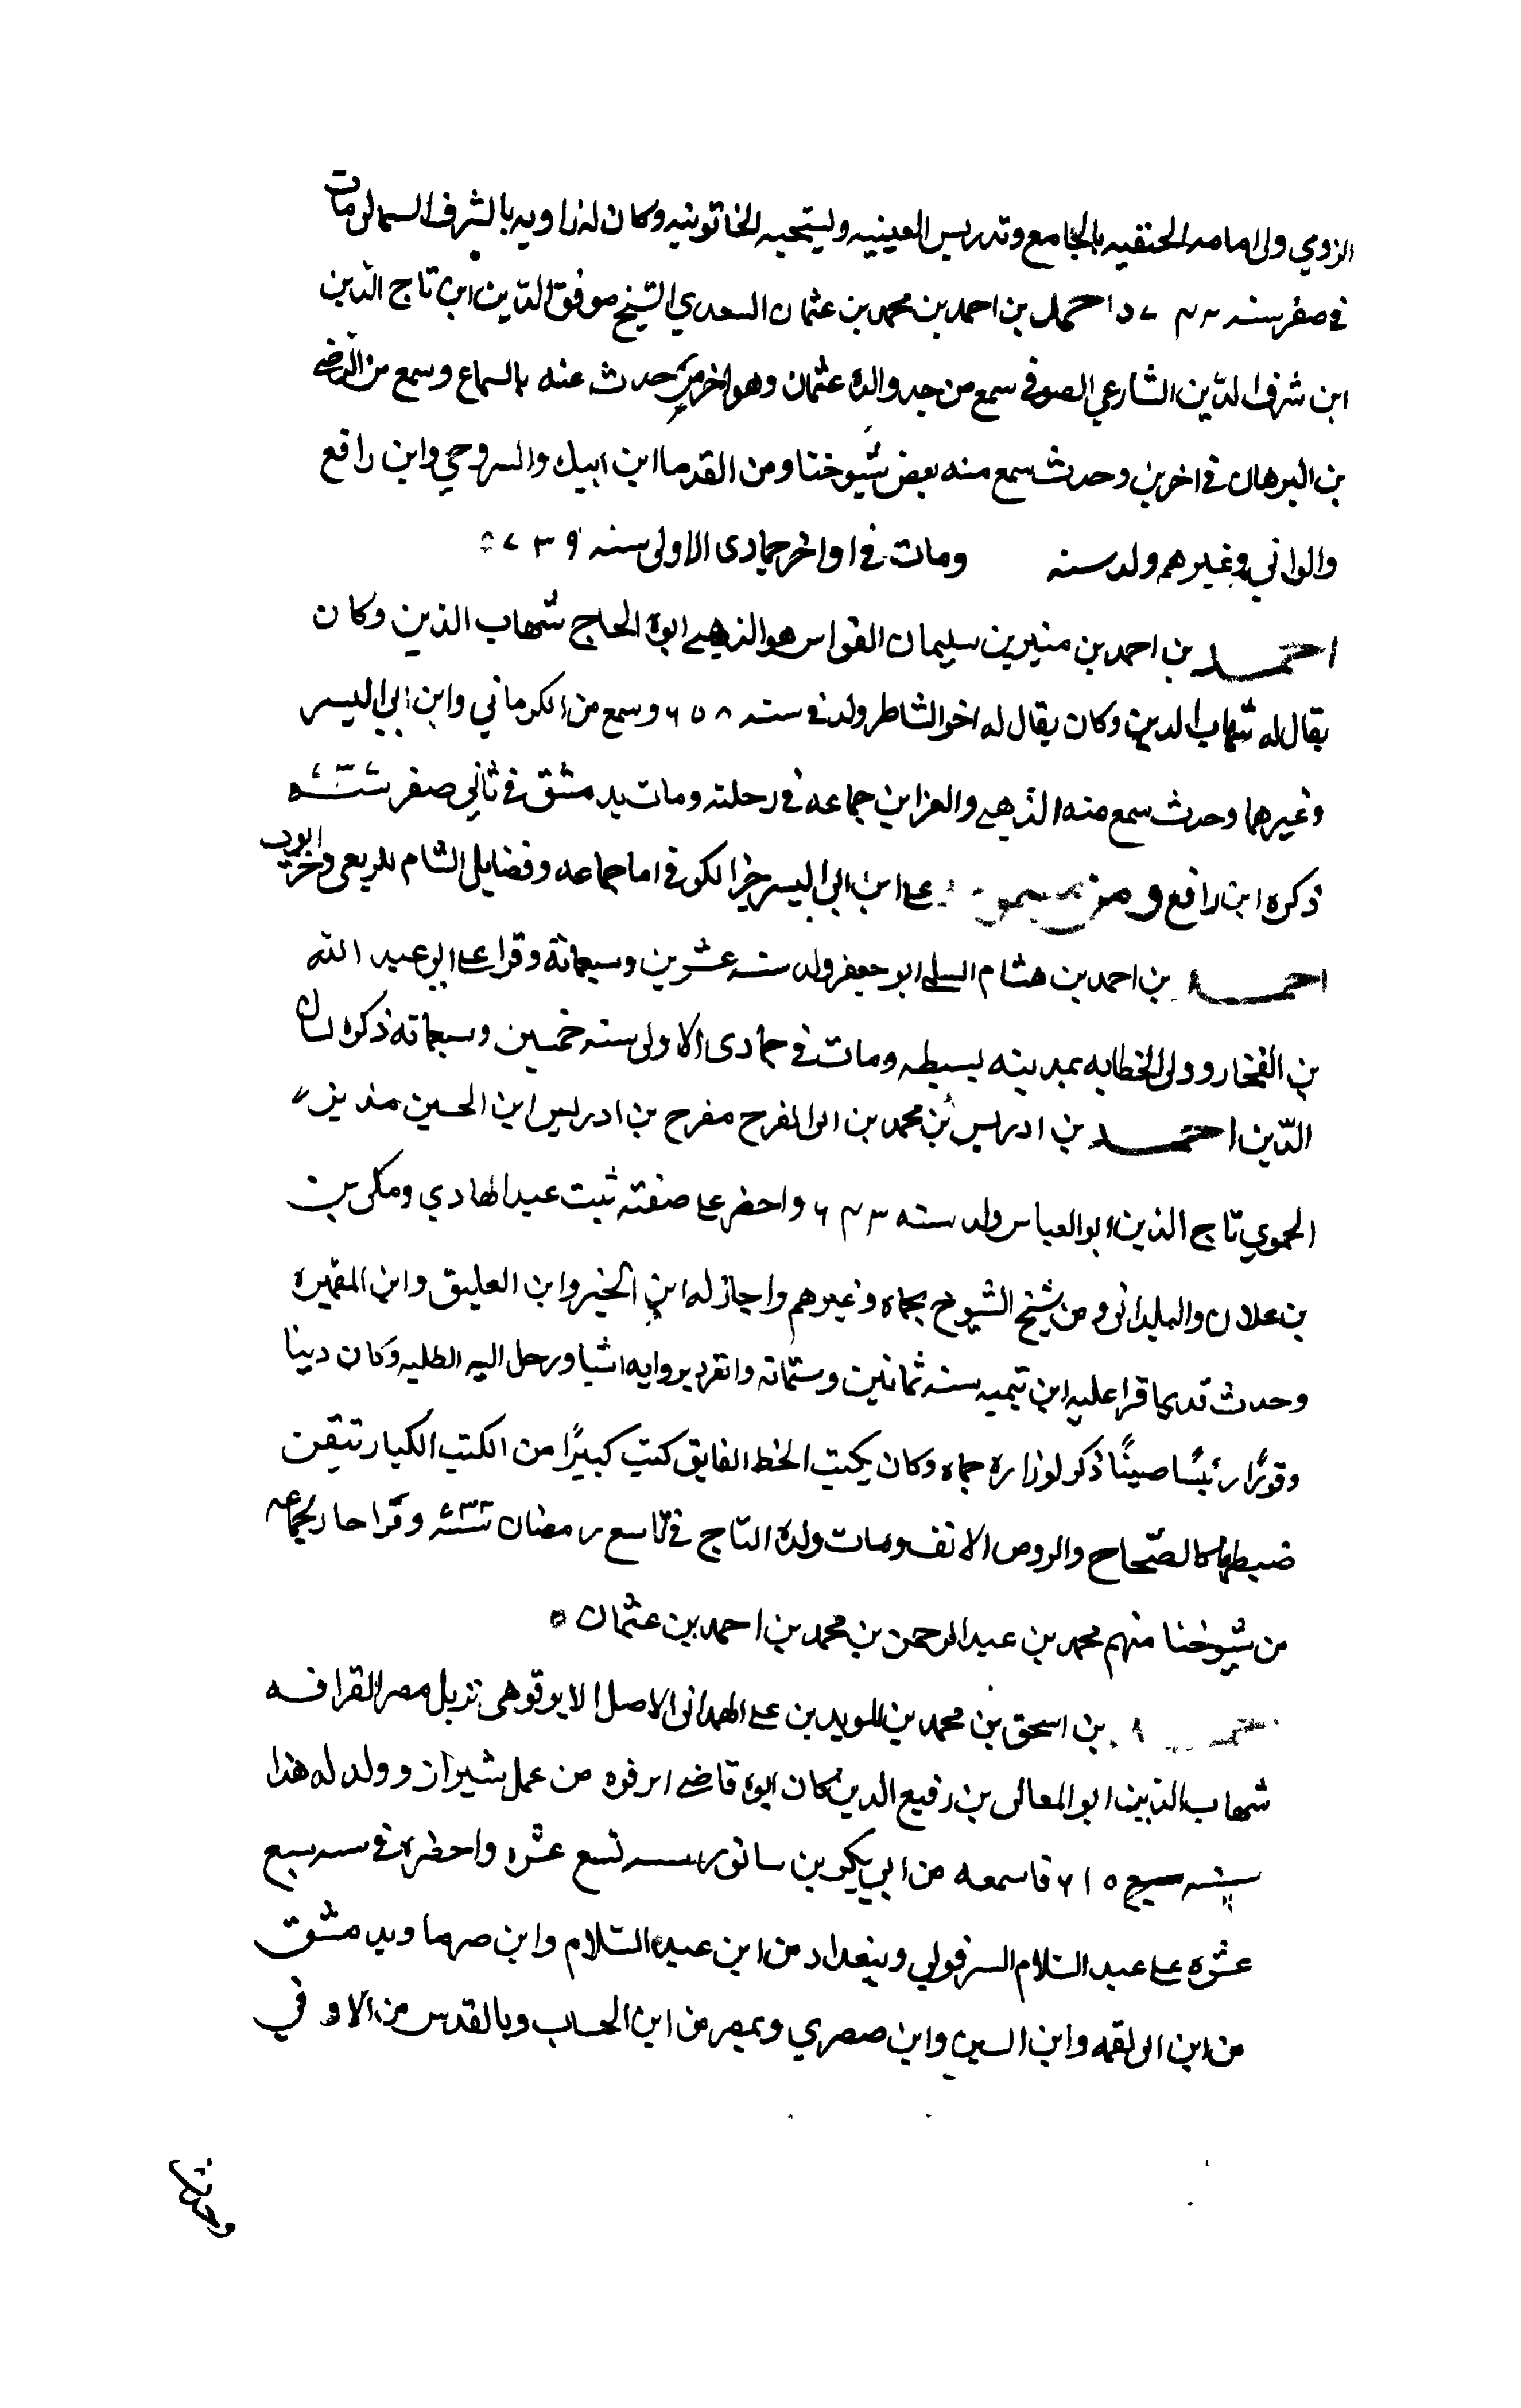 الزوي ولى امامه الحنفيه بالجامع وتدريس العينيه وليتحبه الخاتونيه وكان له زاويه بالشرف السمالى مات
في صفر سنه ٧٣٣ احمد بن احمد بن محمد بن عثمان السعدي الشيخ موفق الدّين ابن تاج الدّين
ابن شرف الدّين الشارعي الصوفي سمع من جد والده عثمان وهو اخر من حدث عنه بالسماع وسمع من القاضي
بن البرهان في اخرين وحدث سمع منه بعض شيوخنا ومن القدما ابن ايبك والسروجي وابن رافع
والواني وغيرهم ولد سنه ومات في اواخر جمادى الاولى سنه ٧٣٩
احمد بن احمد بن منير بن سليمان القواس هو الذهبي ابوه الحاج شهاب الدين وكان
يقال له شهاب الدين وكان يقال له اخو الشاطر ولد في سنه ٦٥٨ وسمع من الكرماني وابن ابي اليسر
وغيرهما وحدث سمع منه الذهبي والعز ابن جماعه في رحلته ومات بدمشق في ثاني صفر
ذكره ابن رافع ومن على ابن ابي اليسر جزا لكوفي اماجماعه وفضايل الشام للربعي وجز ايوب
احمد بن احمد بن هشام السلمي ابو جعفر ولد سنه عشرين وسبعمائة وقرا على ابي عبد الله
بن الفخار وولى الخطابه بمدينه بسيطه ومات في جمادى الاولى سنه خمسين وسبعمائه ذكره لسان
الدّين احمد بن ادريس بن محمد بن ابى الفرج مفرح بن ادريس ابن الحسين مزيز
الحموي تاج الدين ابو العباس ولد سنه ٦٤٣ واحضر على صفته بنت عبد الهادي ومكى بن
بن علان والبلدانى ومن شيخ الشيوخ بحماه وغيرهم واجاز له ابن الخير وابن العليق وابن المقيره
وحدث قديما قرا عليه ابن تيميه سنه ثمانين وستمائه وانفرد بروايه اشيا ورحل اليه الطلبه وكان دينا
وقورًا رئيسًا صينًا ذكر لوزاره حماه وكان يكتب الخط الفايق كتب كبيرًا من الكتب الكبار تيقن
ضبطها كالصّحاح والروض الانف ومات ولده التاج في تاسع رمضان وقرا حار لجماعه
من شيوخنا منهم محمد بن عبد الرحمن بن محمد بن احمد بن عثمان
احمد بن اسحق بن محمد بن المويد بن على الهمدانى الاصل الابوقوهى نزيل مصر القرافه
شهاب الدين ابو المعالى بن رفيع الدين كان ابوه قاضى ابرقوه من عمل شيراز وولد له هذا
سنه سبع ٦١٥ فاسمعه من ابي بكر بن سابور سنه تسع عشره واحضره في سنه سبع
عشره على عبد السّلام السرفولي وببغداد من ابن عبد السّلام وابن صرما وبدمشق
من ابن ابى لقمه وابن البن وابن صصري وبمصر من ابن الحباب وبالقدس من الاوقي
وحدث